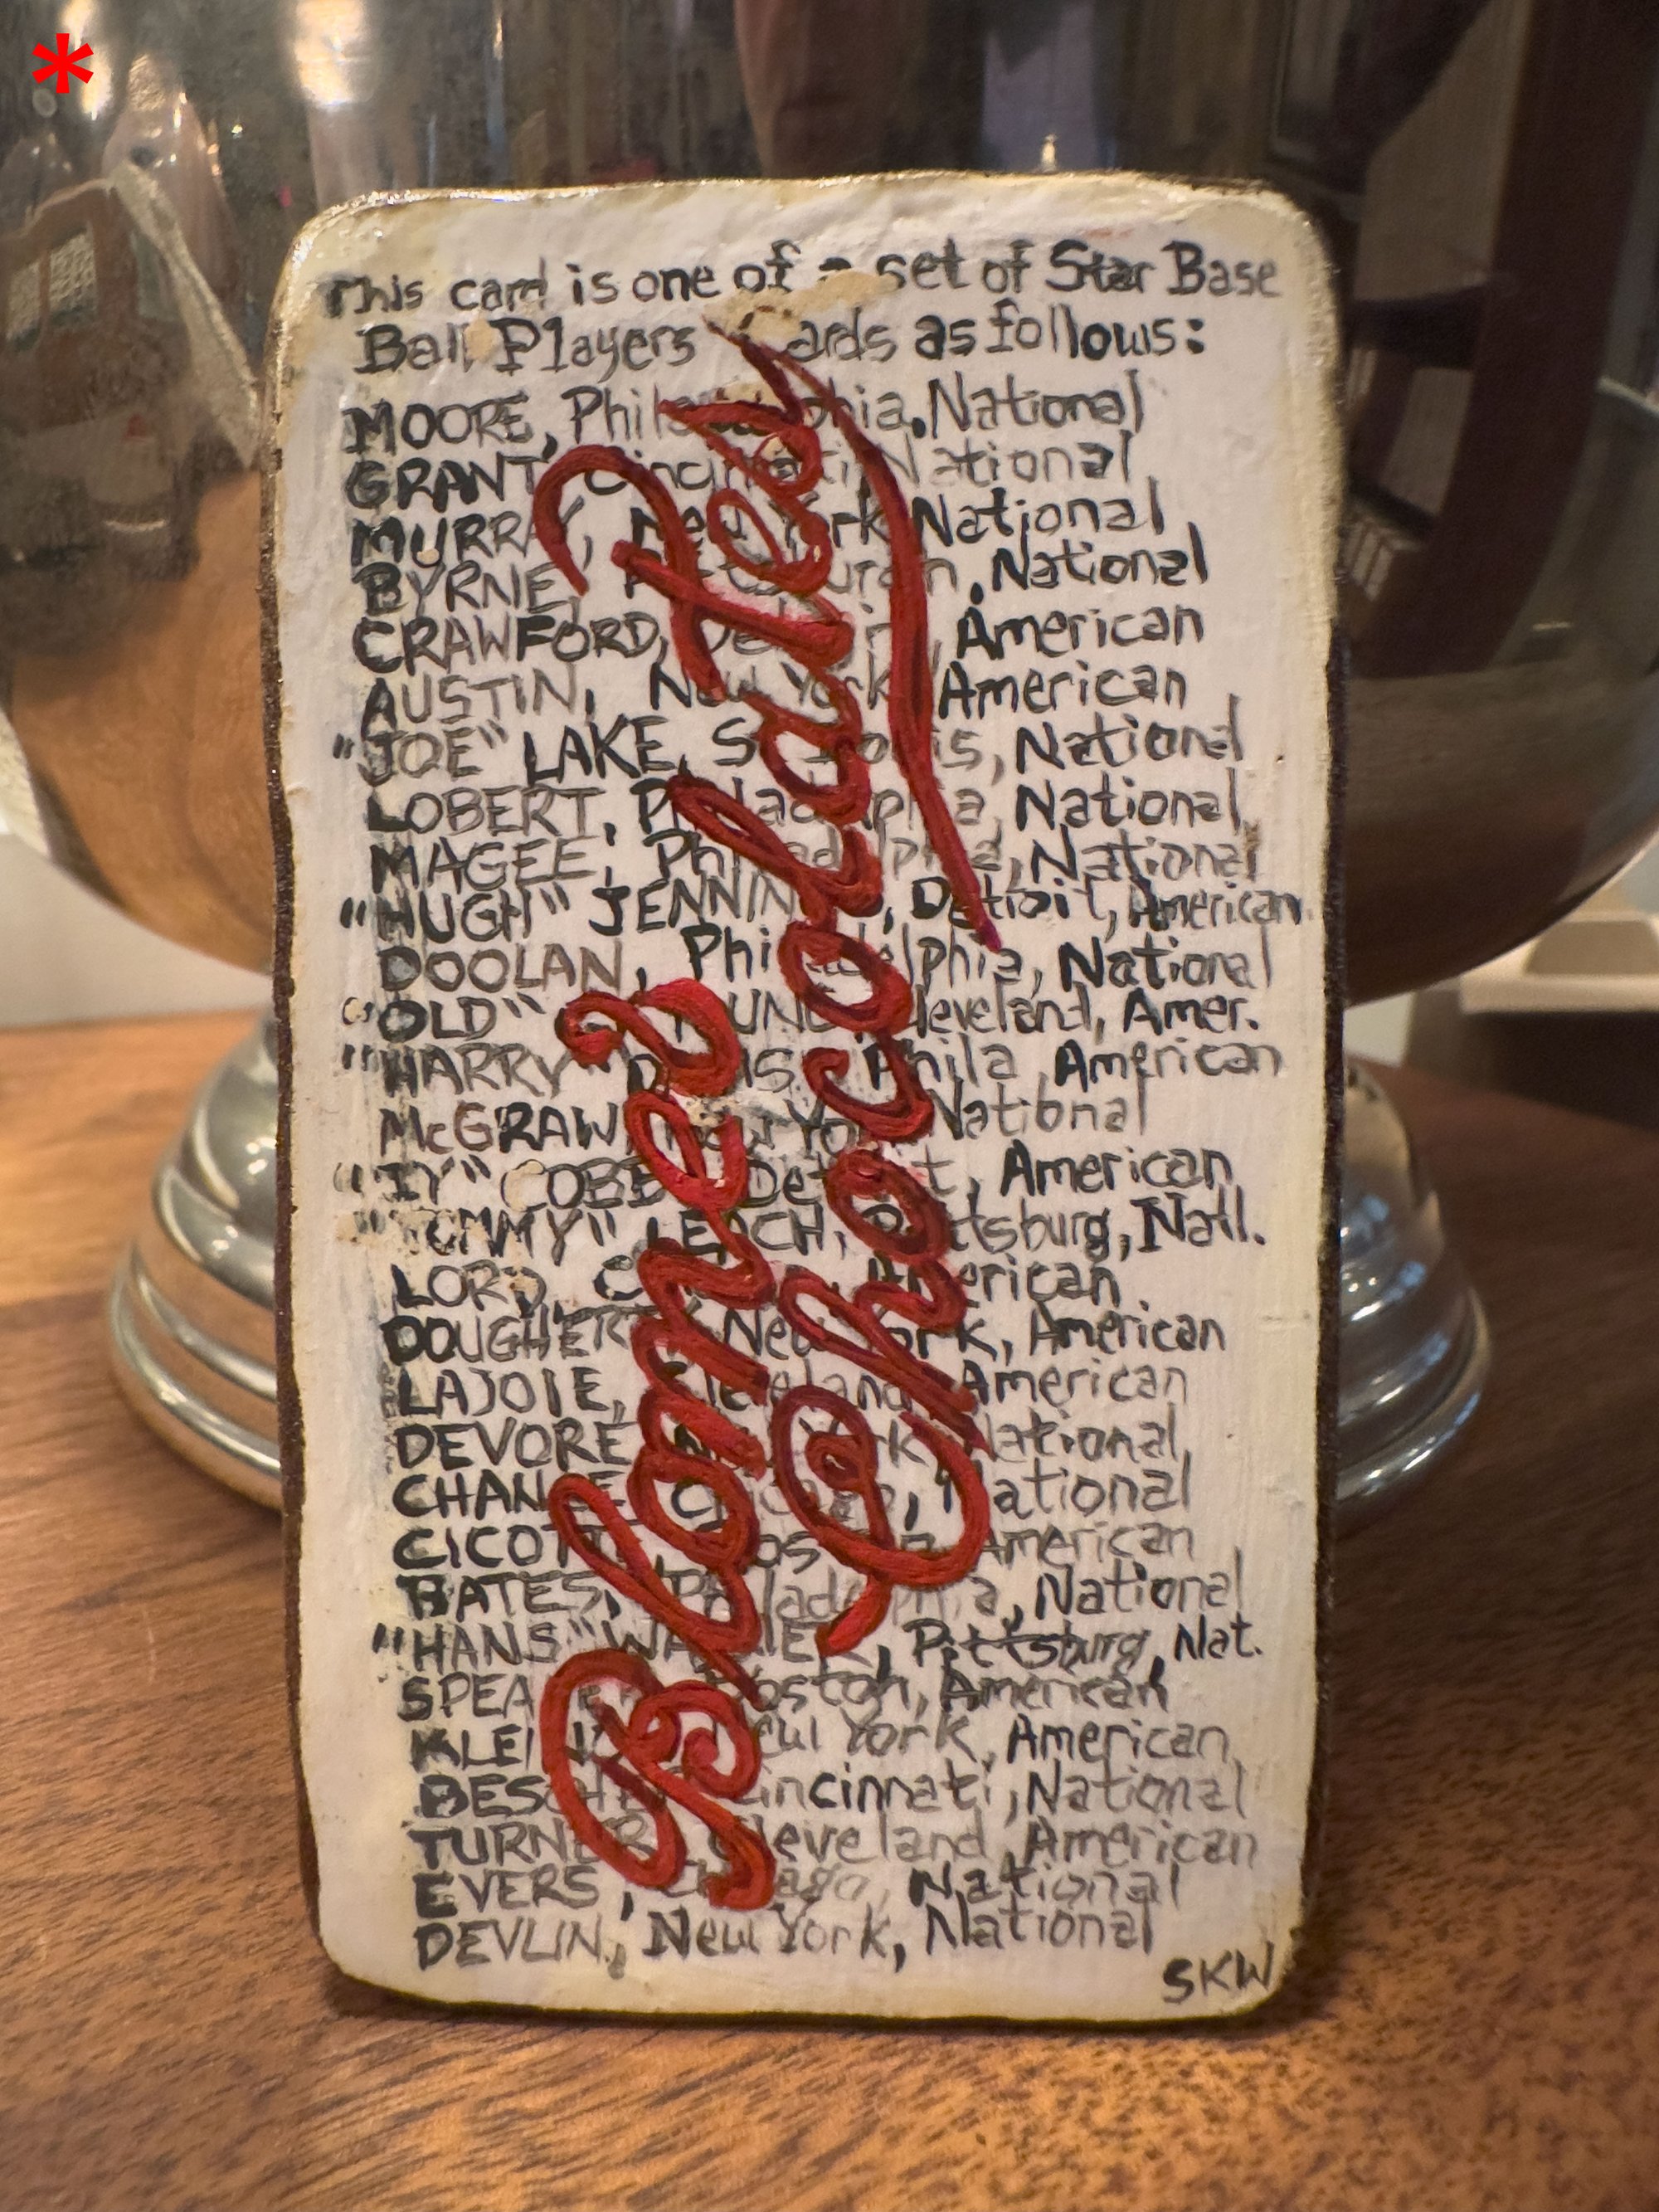 This card is one of a set of Star Base
Ball Players Cards as follows:
MOORE, Philadelphia, National
GRANT, Cincinnati, National
MURRAY, New York National
BYRNE, Pittsburgh, National
CRAWFORD, Detroit, American
AUSTIN, New York American
"JOE" LAKE, St Louis, National
LOBERT, Philadelphia National
MAGEE, Philadelphia, National
"HUGH" JENNINGS, Detroit, American
DOOLAN, Philadelphia, National
"OLD" YOUNG, Cleveland, Amer.
"HARRY" DAVIS, Phila American
McGRAW, New York National
"TY" COBB, Detroit, American
"TOMMY" LEACH, Pittsburg, Natl.
LORD, American
DOUGHERTY, New York, American
LAJOIE, Cleveland, American
DEVORE, New York National
CHANCE, Chicago, National
CICOTTE, Boston American
BATES, Philadelphia, National
"HANS" WAGNER, Pittsburg, Nat.
SPEAKER, Boston, American
KLEINOW, New York, American
BESCHER, Cincinnati, National
TURNER, Cleveland American
EVERS, Chicago, National
DEVLIN, New York, National
SKW
Blome's
Chocolates
*